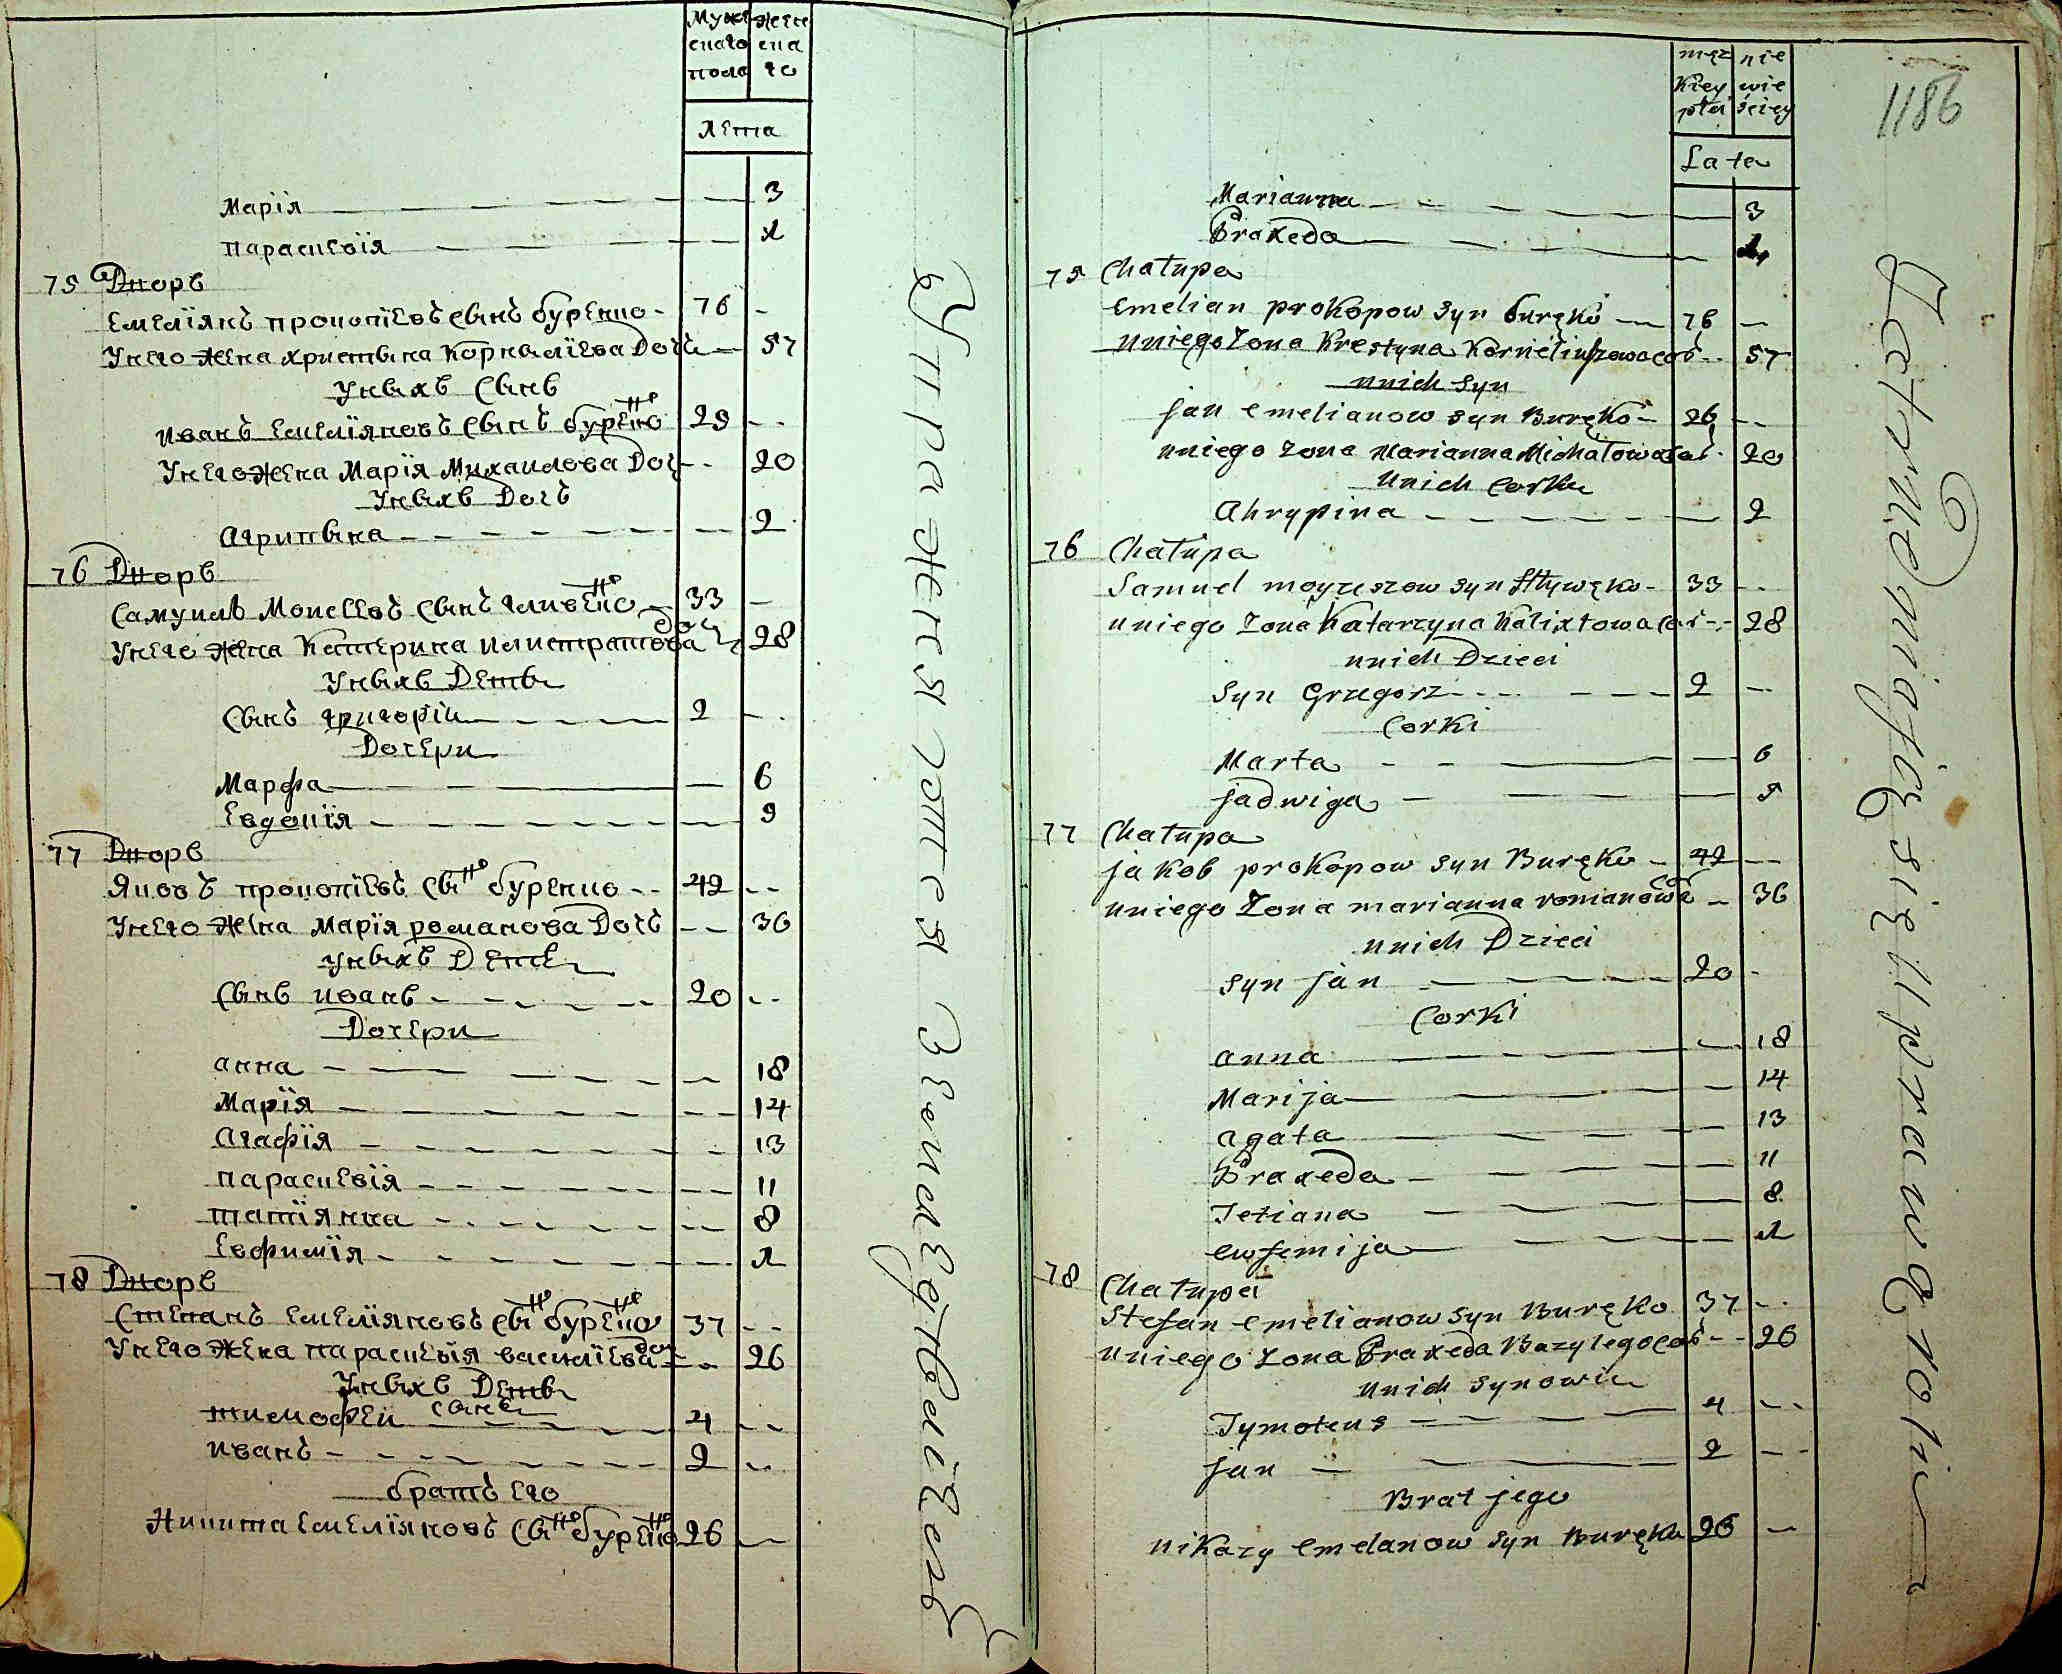 Муже жен
скаго ска
пола го
Лета
Марія — — 3
Параскевїя — — 1
75 Дворъ
Емелїянъ прокопїевъ сынъ буренко - 76 -
Унего жена христына Корналїева Дочь — 57
Унихъ сынъ
Иванъ Емелїяновъ сынъ буренко 25 - -
Унего жена Марїя Михаилова Доч - - 20
Унихъ Дочь
Агрипына - - - 2
76 Дворъ
Самуилъ Моисеевъ сынъ гливенко 33 —
Унего жена Катерина Илистратова Доч 28
Унихъ Дети
Сынъ григорїи — 2 - -
Дочери
Марфа — — 6
Евдокїя — — 5
77 Дворъ
Яковъ прокопїевъ сынъ буренко - - 42 - -
Унего жена Марїя романова Дочь - - 36
Унихъ Дети
Сынъ иванъ - - - 20 - -
Дочери
анна — — 18
Марїя — — 14
Агафїя — — 13
Параскевїя - - - 11
татїянна - - - 8
Евфимїя - - - 1
78 Дворъ
Степанъ Емелїяновъ сынъ буренко 37 - -
Унего жена параскевїя василїева доч - 26
Унихъ Дети
сыны
тимофеи — 4 - -
иванъ - - - 2 - -
братъ его
Никита Емелїяновъ сынъ буренко 26 —
Упражняются Земледѣлїемъ
męz nie
kiey wie
płci ściey
Lata
1186
Marianna — — 3
Praxeda — — 1
75 Chałupa
Emelian prokopow syn buręko — 76 —
uniego żona Krestyna Korneliuszowa cor - - 57
unich syn
jan emelianow syn Buręko - 25 - -
uniego żona Marianna Michałowa cor - 20
unich corka
Ahrypina - - - 2
76 Chałupa
Samuel moyzeszow syn Hływęko - 33 - -
uniego żona Katarzyna Kalixtowa cor - - 28
unich Dzieci
syn Grzegorz - - - 2 —
Corki
Marta - - — 6
jadwiga — — 5
77 Chałupa
jakob prokopow syn Buręko - 42 - -
uniego żona marianna romanowa cor - 36
unich Dzieci
syn jan — 20 -
Corki
anna — — 18
Marija — — 14
agata — — 13
Praxeda — — 11
Tetiana — — 8
ewfemija — — 1
78 Chałupa
Stefan emelianow syn Buręko 37 - -
uniego żona Praxeda Bazylego cor - - 26
unich synowie
Tymoteus — 4 - -
jan — 2 - -
Brat jego
nikazy emelanow syn Buręko 26 —
Zatrudniaią się uprawą roli